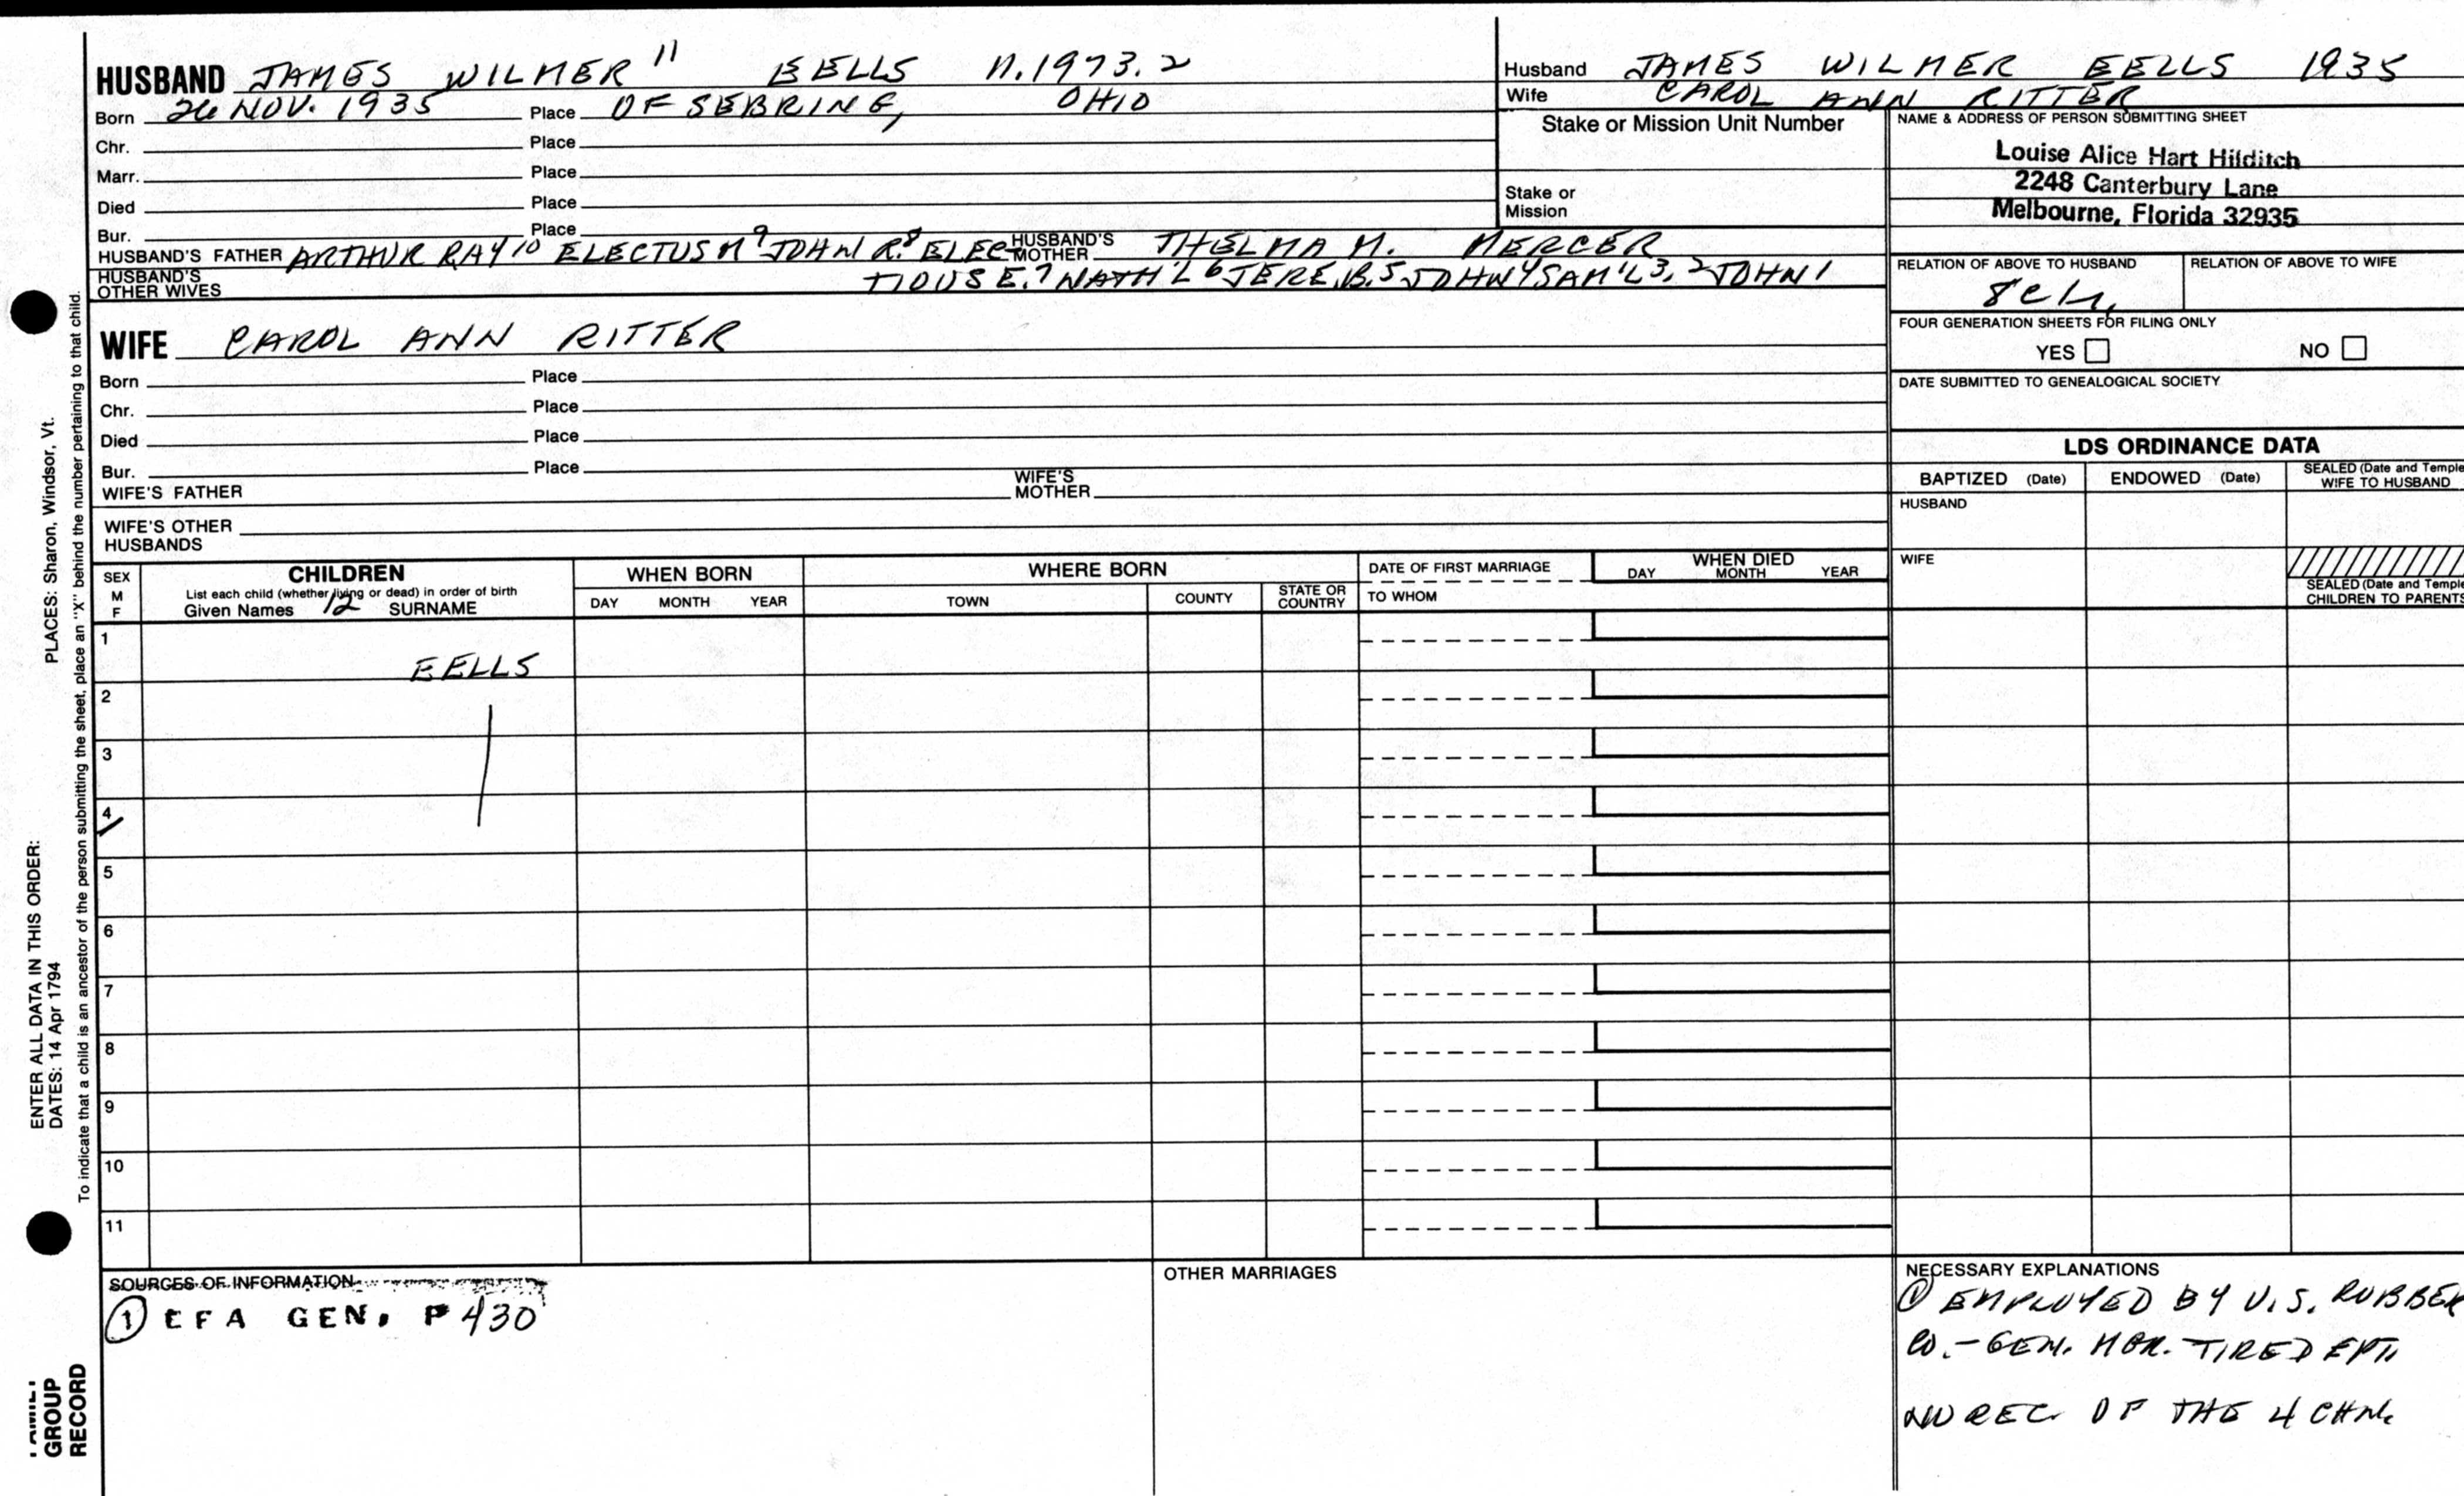 HUSBAND JAMES WILMER 11 EELLS N.1973.2
Born 26 NOV. 1935 Place OF SEBRING, OHIO
Chr. Place
Marr. Place
Died Place
Bur. Place
HUSBAND'S FATHER ARTHUR RAY 10 ELECTUS M 9 JOHN R. 8 ELEC- HUSBAND'S MOTHER THELMA M. MERCER
HUSBAND'S OTHER WIVES TIOUS E. 7 NATH'L 6 JERE. B. 5 JOHN 4 SAM'L 3, 2 JOHN 1
WIFE CAROL ANN RITTER
Born Place
Chr. Place
Died Place
Bur. Place
WIFE'S FATHER WIFE'S MOTHER
WIFE'S OTHER HUSBANDS
Husband JAMES WILMER EELLS 1935
Wife CAROL ANN RITTER
Stake or Mission Unit Number
Stake or
Mission
NAME & ADDRESS OF PERSON SUBMITTING SHEET
Louise Alice Hart Hilditch
2248 Canterbury Lane
Melbourne, Florida 32935
RELATION OF ABOVE TO HUSBAND RELATION OF ABOVE TO WIFE
FOUR GENERATION SHEETS FOR FILING ONLY
YES NO
DATE SUBMITTED TO GENEALOGICAL SOCIETY
LDS ORDINANCE DATA
BAPTIZED (Date) ENDOWED (Date) SEALED (Date and Temple) WIFE TO HUSBAND
HUSBAND
WIFE
SEALED (Date and Temple) CHILDREN TO PARENTS
SEX M F
CHILDREN
List each child (whether living or dead) in order of birth
Given Names 12 SURNAME
WHEN BORN
DAY MONTH YEAR
WHERE BORN
TOWN COUNTY STATE OR COUNTRY
DATE OF FIRST MARRIAGE
TO WHOM
WHEN DIED
DAY MONTH YEAR
1 EELLS
2
3
4
5
6
7
8
9
10
11
SOURCES OF INFORMATION
① EFA GEN. P 430
OTHER MARRIAGES
NECESSARY EXPLANATIONS
① EMPLOYED BY U.S. RUBBER
CO. - GEN. MGR. TIRE DEPT.
NO REC. OF THE 4 CHN.
ENTER ALL DATA IN THIS ORDER:
DATES: 14 Apr 1794 PLACES: Sharon, Windsor, Vt.
To indicate that a child is an ancestor of the person submitting the sheet, place an "X" behind the number pertaining to that child.
FAMILY
GROUP
RECORD